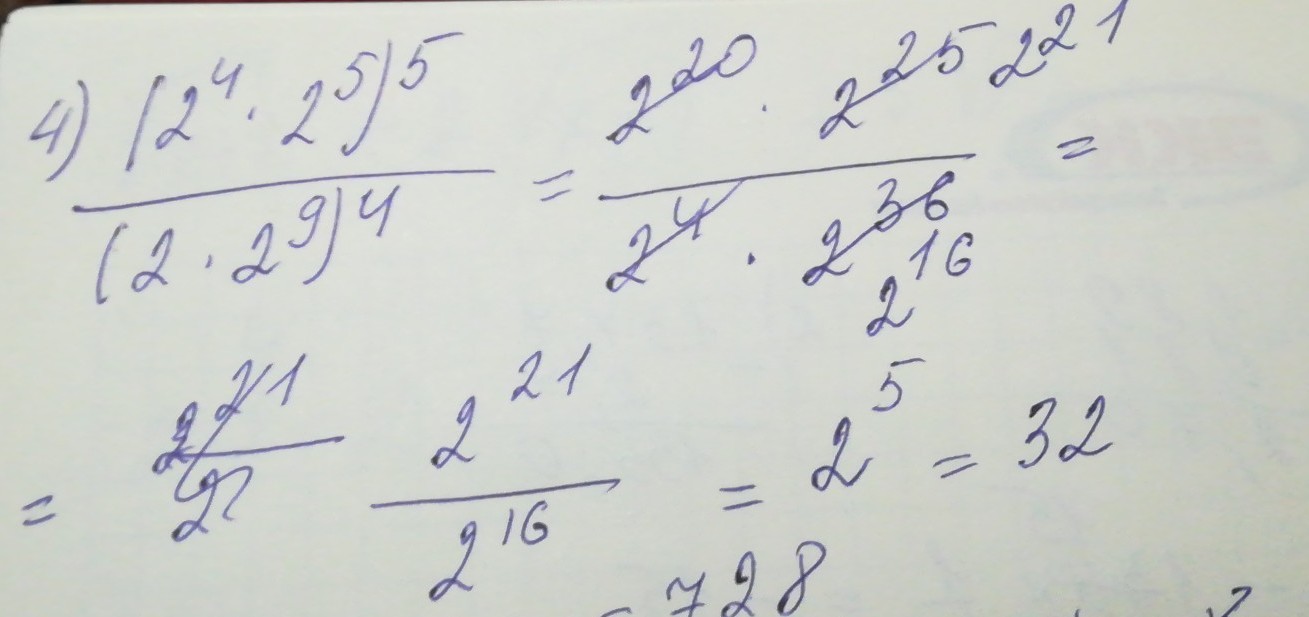 4) (2^4 · 2^5)^5 / (2 · 2^9)^4 = 2^20 · 2^25 2^21 / 2^4 · 2^36 2^16 =
= 2^21 / 2^16 = 2^5 = 32
= 728